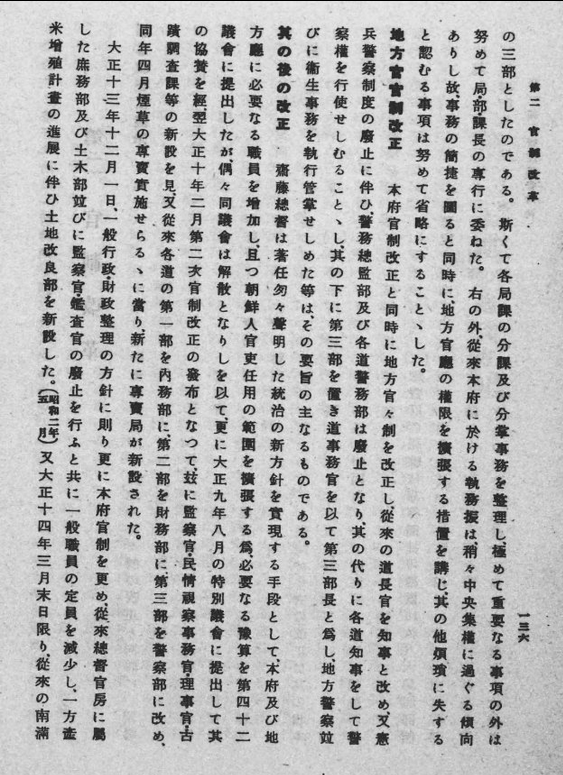 第二　官制改革
一三六
の三部としたのである。斯くて各局課の分課及び分掌事務を整理し、極めて重要なる事項の外は
努めて局・部課長の專行に委ねた。右の外從來本府に於ける執務振は、稍々中央集權に過ぐる傾向
ありし故、事務の簡捷を圖ると同時に、地方官廳の權限を擴張する措置を講じ、其の他煩瑣に失する
と認むる事項は努めて省略にすることゝした。
地方官官制改正　本府官制改正と同時に地方官々制を改正し、從來の道長官を知事と改め、又憲
兵警察制度の廢止に伴ひ、警務總監部及び各道警務部は廢止となり、其の代りに各道知事をして警
察權を行使せしむることゝし、其の下に第三部を置き道事務官を以て第三部長と爲し地方警察竝
びに衞生事務を執行管掌せしめた等は、その要旨の主なるものである。
其の後の改正　齋藤總督は著任匆々聲明した統治の新方針を實現する手段として本府及び地
方廳に必要なる職員を增加し、且つ朝鮮人官吏任用の範圍を擴張する爲、必要なる豫算を第四十二
議會に提出したが、偶々同議會は解散となりしを以て、更に大正九年八月の特別議會に提出して其
の協賛を經、翌大正十年二月第二次官制改正の發布となつて、玆に監察官・民情視察事務官・理事官・古
蹟調査課等の新設を見、又從來各道の第一部を內務部に、第二部を財務部に第三部を警察部に改め、
同年四月煙草の專賣實施せらるゝに當り、新たに專賣局が新設された。
大正十三年十二月一日、一般行政・財政整理の方針に則り更に本府官制を更め、從來總督官房に屬
した庶務部及び土木部竝びに監察官・鑑査官の廢止を行ふと共に一般職員の定員を減少し、一方產
米增殖計畫の進展に伴ひ土地改良部を新設した。（昭和二年五月）又大正十四年三月末日限り、從來の南滿